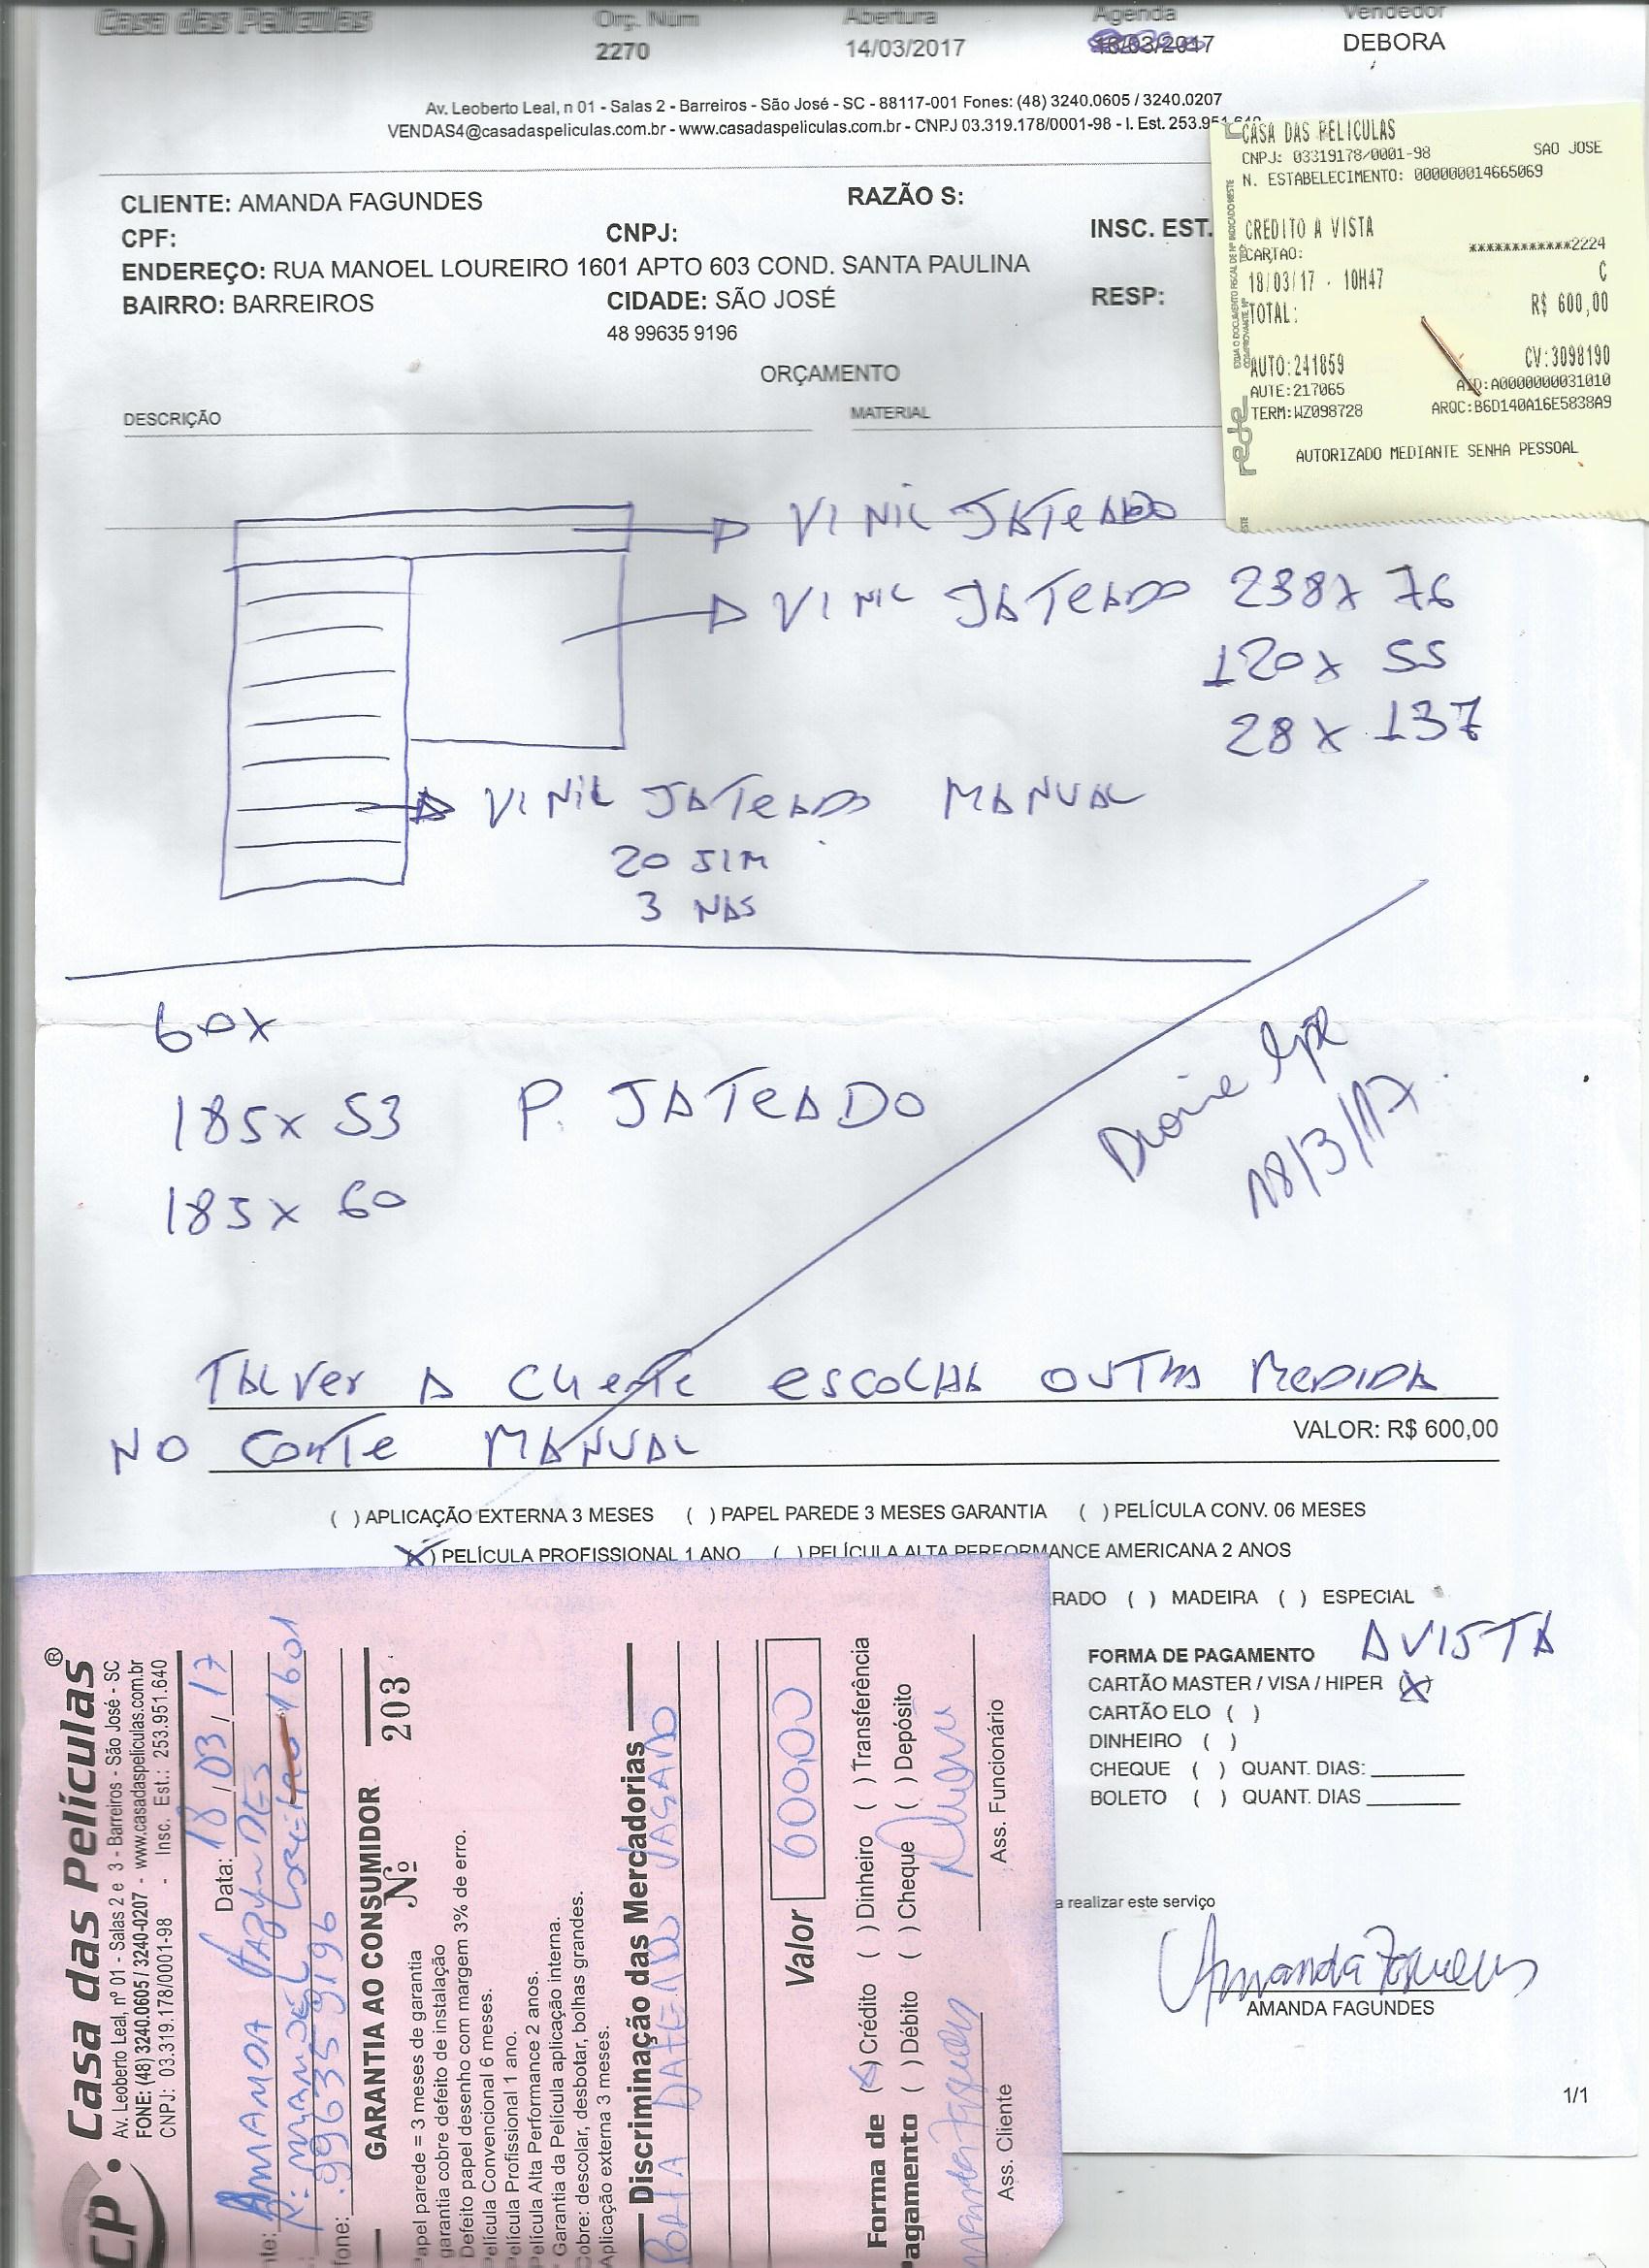 Casa das Películas
Orç. Núm Abertura Agenda Vendedor
2270 14/03/2017 16/03/2017 DEBORA
Av. Leoberto Leal, n 01 - Salas 2 - Barreiros - São José - SC - 88117-001 Fones: (48) 3240.0605 / 3240.0207
VENDAS4@casadaspeliculas.com.br - www.casadaspeliculas.com.br - CNPJ 03.319.178/0001-98 - I. Est. 253.951.640
CLIENTE: AMANDA FAGUNDES RAZÃO S:
CPF: CNPJ: INSC. EST.
ENDEREÇO: RUA MANOEL LOUREIRO 1601 APTO 603 COND. SANTA PAULINA
BAIRRO: BARREIROS CIDADE: SÃO JOSÉ RESP:
48 99635 9196
ORÇAMENTO
DESCRIÇÃO MATERIAL
CASA DAS PELICULAS
CNPJ: 03319178/0001-98 SAO JOSE
N. ESTABELECIMENTO: 000000014665069
CREDITO A VISTA
CARTAO: ************2224
C
18/03/17 - 10H47
TOTAL: R$ 600,00
AUTO:241859 CV:3098190
AUTE:217065 AID:A0000000031010
TERM:WZ098728 ARQC:B6D140A16E5838A9
AUTORIZADO MEDIANTE SENHA PESSOAL
rede
VINIL JATEADO
VINIL JATEADO 238X 76
120X 55
28X 137
VINIL JATEADO MANUAL
20 SIM
3 NAS
60X
185X 53 P. JATEADO
185X 60
18/3/17
TALVEZ A CLIENTE ESCOLHA OUTRA MEDIDA
VALOR: R$ 600,00
NO CORTE MANUAL
( ) APLICAÇÃO EXTERNA 3 MESES ( ) PAPEL PAREDE 3 MESES GARANTIA ( ) PELÍCULA CONV. 06 MESES
(X) PELÍCULA PROFISSIONAL 1 ANO ( ) PELÍCULA ALTA PERFORMANCE AMERICANA 2 ANOS
RADO ( ) MADEIRA ( ) ESPECIAL
FORMA DE PAGAMENTO AVISTA
CARTÃO MASTER / VISA / HIPER (X)
CARTÃO ELO ( )
DINHEIRO ( )
CHEQUE ( ) QUANT. DIAS:
BOLETO ( ) QUANT. DIAS
a realizar este serviço
Amanda Fagundes
AMANDA FAGUNDES
1/1
CP. Casa das Películas®
Av. Leoberto Leal, nº 01 - Salas 2 e 3 - Barreiros - São José - SC
FONE: (48) 3240.0605 / 3240-0207 - www.casadaspeliculas.com.br
CNPJ: 03.319.178/0001-98 - Insc. Est.: 253.951.640
Data: 18/03/17
nte: AMANDA FAGUNDES
R: MANOEL LOUREIRO 1601
fone: 99635 9196
GARANTIA AO CONSUMIDOR Nº 203
apel parede = 3 meses de garantia
garantia cobre defeito de instalação
Defeito papel desenho com margem 3% de erro.
elícula Convencional 6 meses.
elícula Profissional 1 ano.
elícula Alta Performance 2 anos.
Garantia da Película aplicação interna.
obre: descolar, desbotar, bolhas grandes.
Aplicação externa 3 meses.
Discriminação das Mercadorias
Valor 600,00
Forma de (X) Crédito ( ) Dinheiro ( ) Transferência
agamento ( ) Débito ( ) Cheque ( ) Depósito
Ass. Cliente Ass. Funcionário